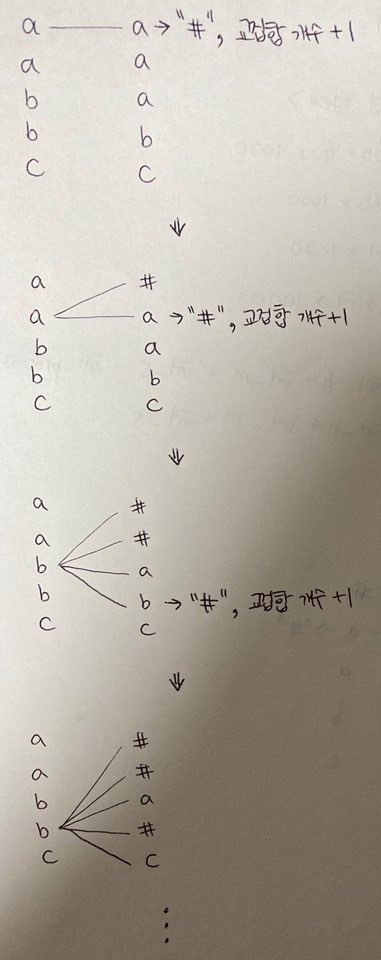 a a → "#", 교집합 개수 +1
a a
b a
b b
c c
⇓
a #
a a → "#", 교집합 개수 +1
b a
b b
c c
⇓
a #
a #
b a
b b → "#", 교집합 개수 +1
c c
⇓
a #
a #
b a
b #
c c
⋮